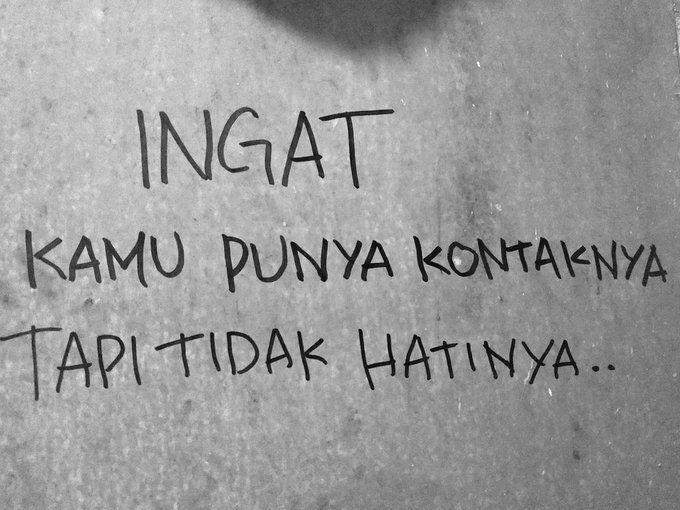 INGAT
KAMU PUNYA KONTAKNYA
TAPI TIDAK HATINYA..